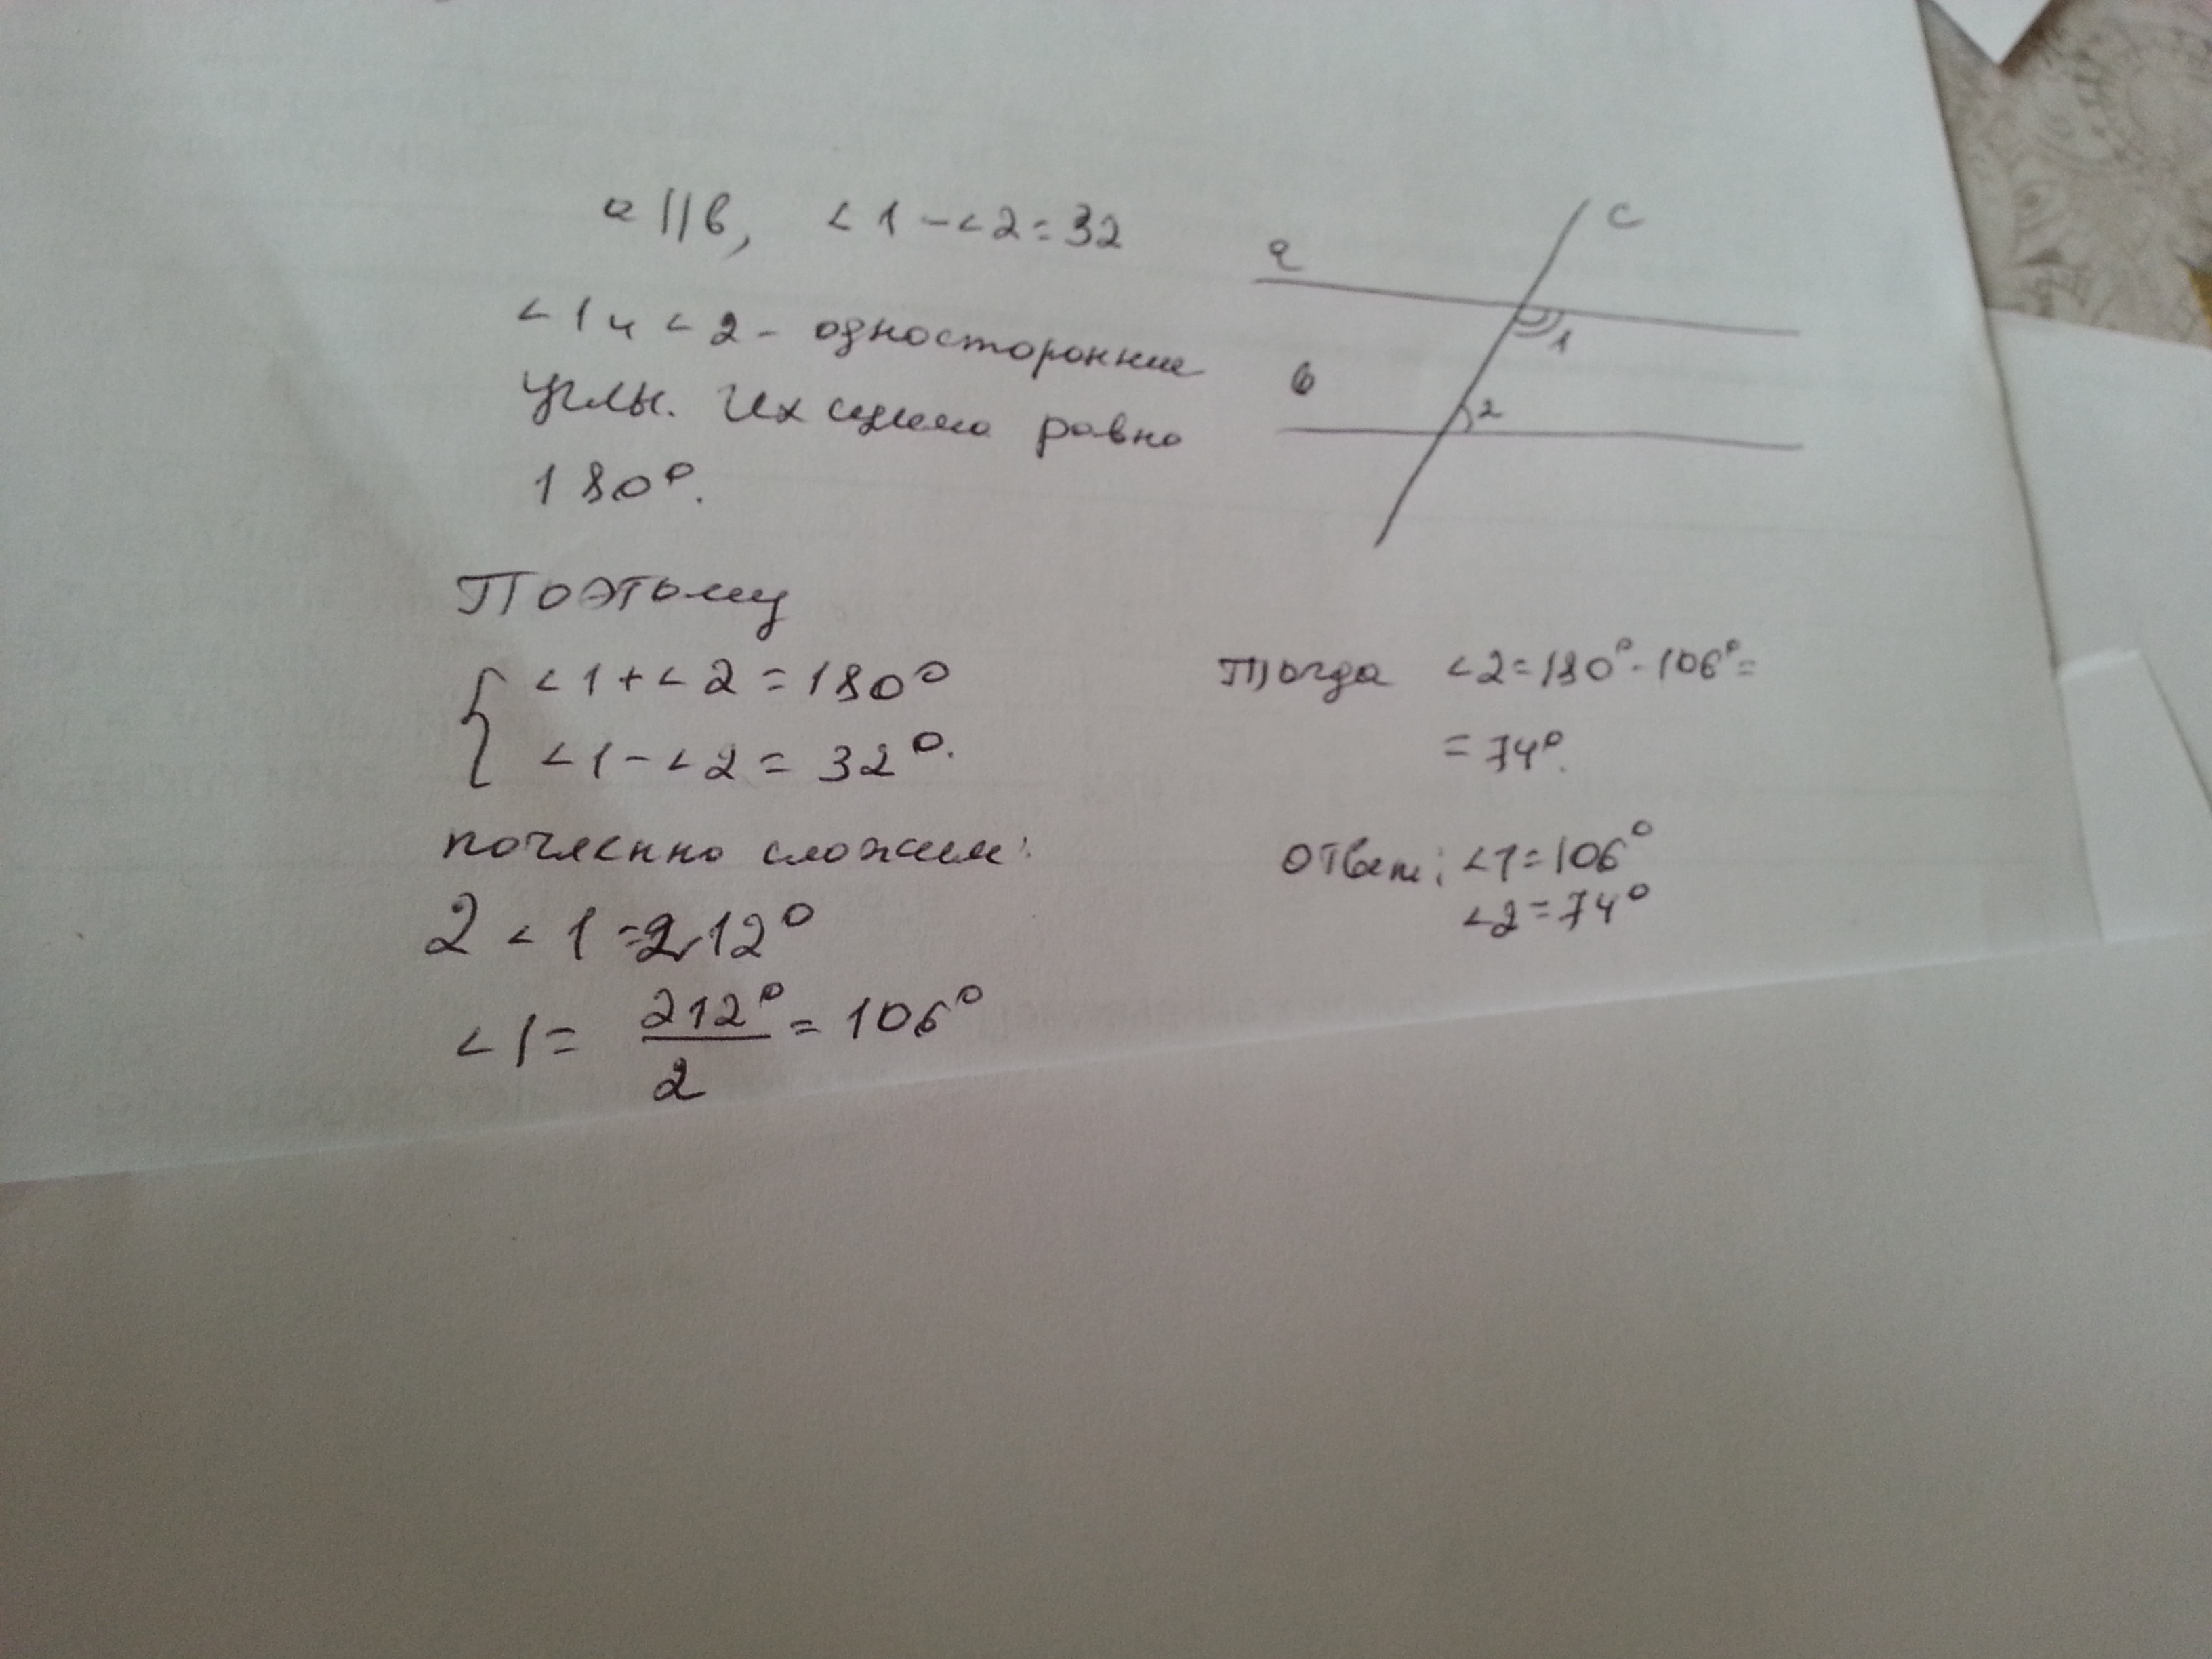 a || b, ∠1 - ∠2 = 32
∠1 и ∠2 - односторонние
углы. Их сумма равна
180°.
a
c
1
b
2
Поэтому
{ ∠1 + ∠2 = 180°
∠1 - ∠2 = 32°.
почленно сложим:
2∠1 = 212°
∠1 = 212°/2 = 106°
Тогда ∠2 = 180° - 106° =
= 74°.
Ответ: ∠1 = 106°
∠2 = 74°